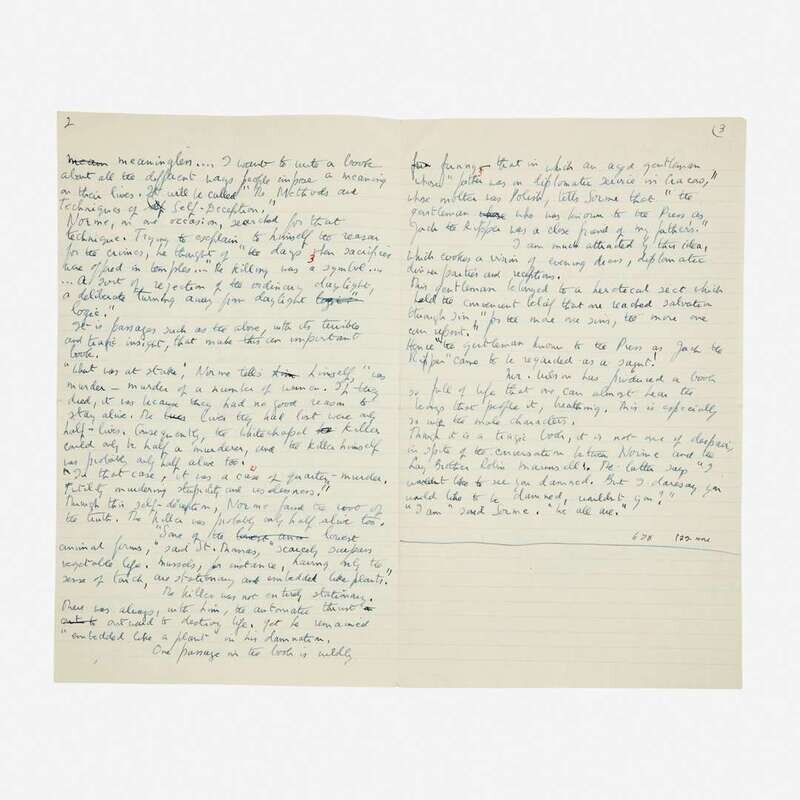 2
mean meaningless.... I want to write a book
about all the different ways people impose a meaning
on their lives. It will be called "The Methods and
Techniques of Self-Deception."
Norme, on one occasion, searched for that
technique. Trying to explain to himself the reason
for the crimes, he thought of "the days when sacrifices
were offered in temples.... The killing was a symbol....
.... A sort of rejection of the ordinary daylight,
a deliberate turning away from daylight logic"
logic."
It is passages such as the above, with its terrible
and tragic insight, that make this an important
book.
"What was at stake? Norme tells him himself, "was
murder – murder of a number of women. If they
died, it was because they had no good reason to
stay alive. The lives lives they had lost were only
half-lives. Consequently, the Whitechapel killer
could only be half a murderer, and the killer himself
was probably only half alive too."
"In that case, it was a case of quarter-murder.
Futility murdering stupidity and uselessness."
Through this self-deception, Norme found the root of
the truth. The killer was probably only half alive too.
"Some of the lowest
animal forms," said St. Thomas, "scarcely surpass
vegetable life. Mussels, for instance, having only the
sense of touch, are stationary and embedded like plants."
The killer was not entirely stationary.
There was always, with him, the automatic thrust
out to outward to destroy life. Yet he remained
"embedded like a plant" in his damnation.
One passage in the book is wildly
3
fun funny, that in which an aged gentleman
whose "father was on diplomatic service in Cracow,"
whose mother was Polish, tells Sorme that "the
gentleman who was known to the Press as
Jack the Ripper was a close friend of my father's."
I am much attracted by this idea,
which evokes a vision of evening dress, diplomatic
dinner parties and receptions.
This gentleman belonged to a heretical sect which
held the convenient belief that one reached salvation
through sin "for the more one sins, the more one
can repent."
Hence "the gentleman known to the Press as Jack the
Ripper" came to be regarded as a saint!
Mr. Wilson has produced a book
so full of life that one can almost hear the
beings that people it, breathing. This is especially
so with the male characters.
Though it is a tragic book, it is not one of despair,
in spite of the conversation between Norme and the
Lay Brother Robin Marsvall. The latter says "I
wouldn't like to see you damned. But I daresay you
would like to be damned, wouldn't you?"
"I am" said Sorme. "We all are."
678 122 more